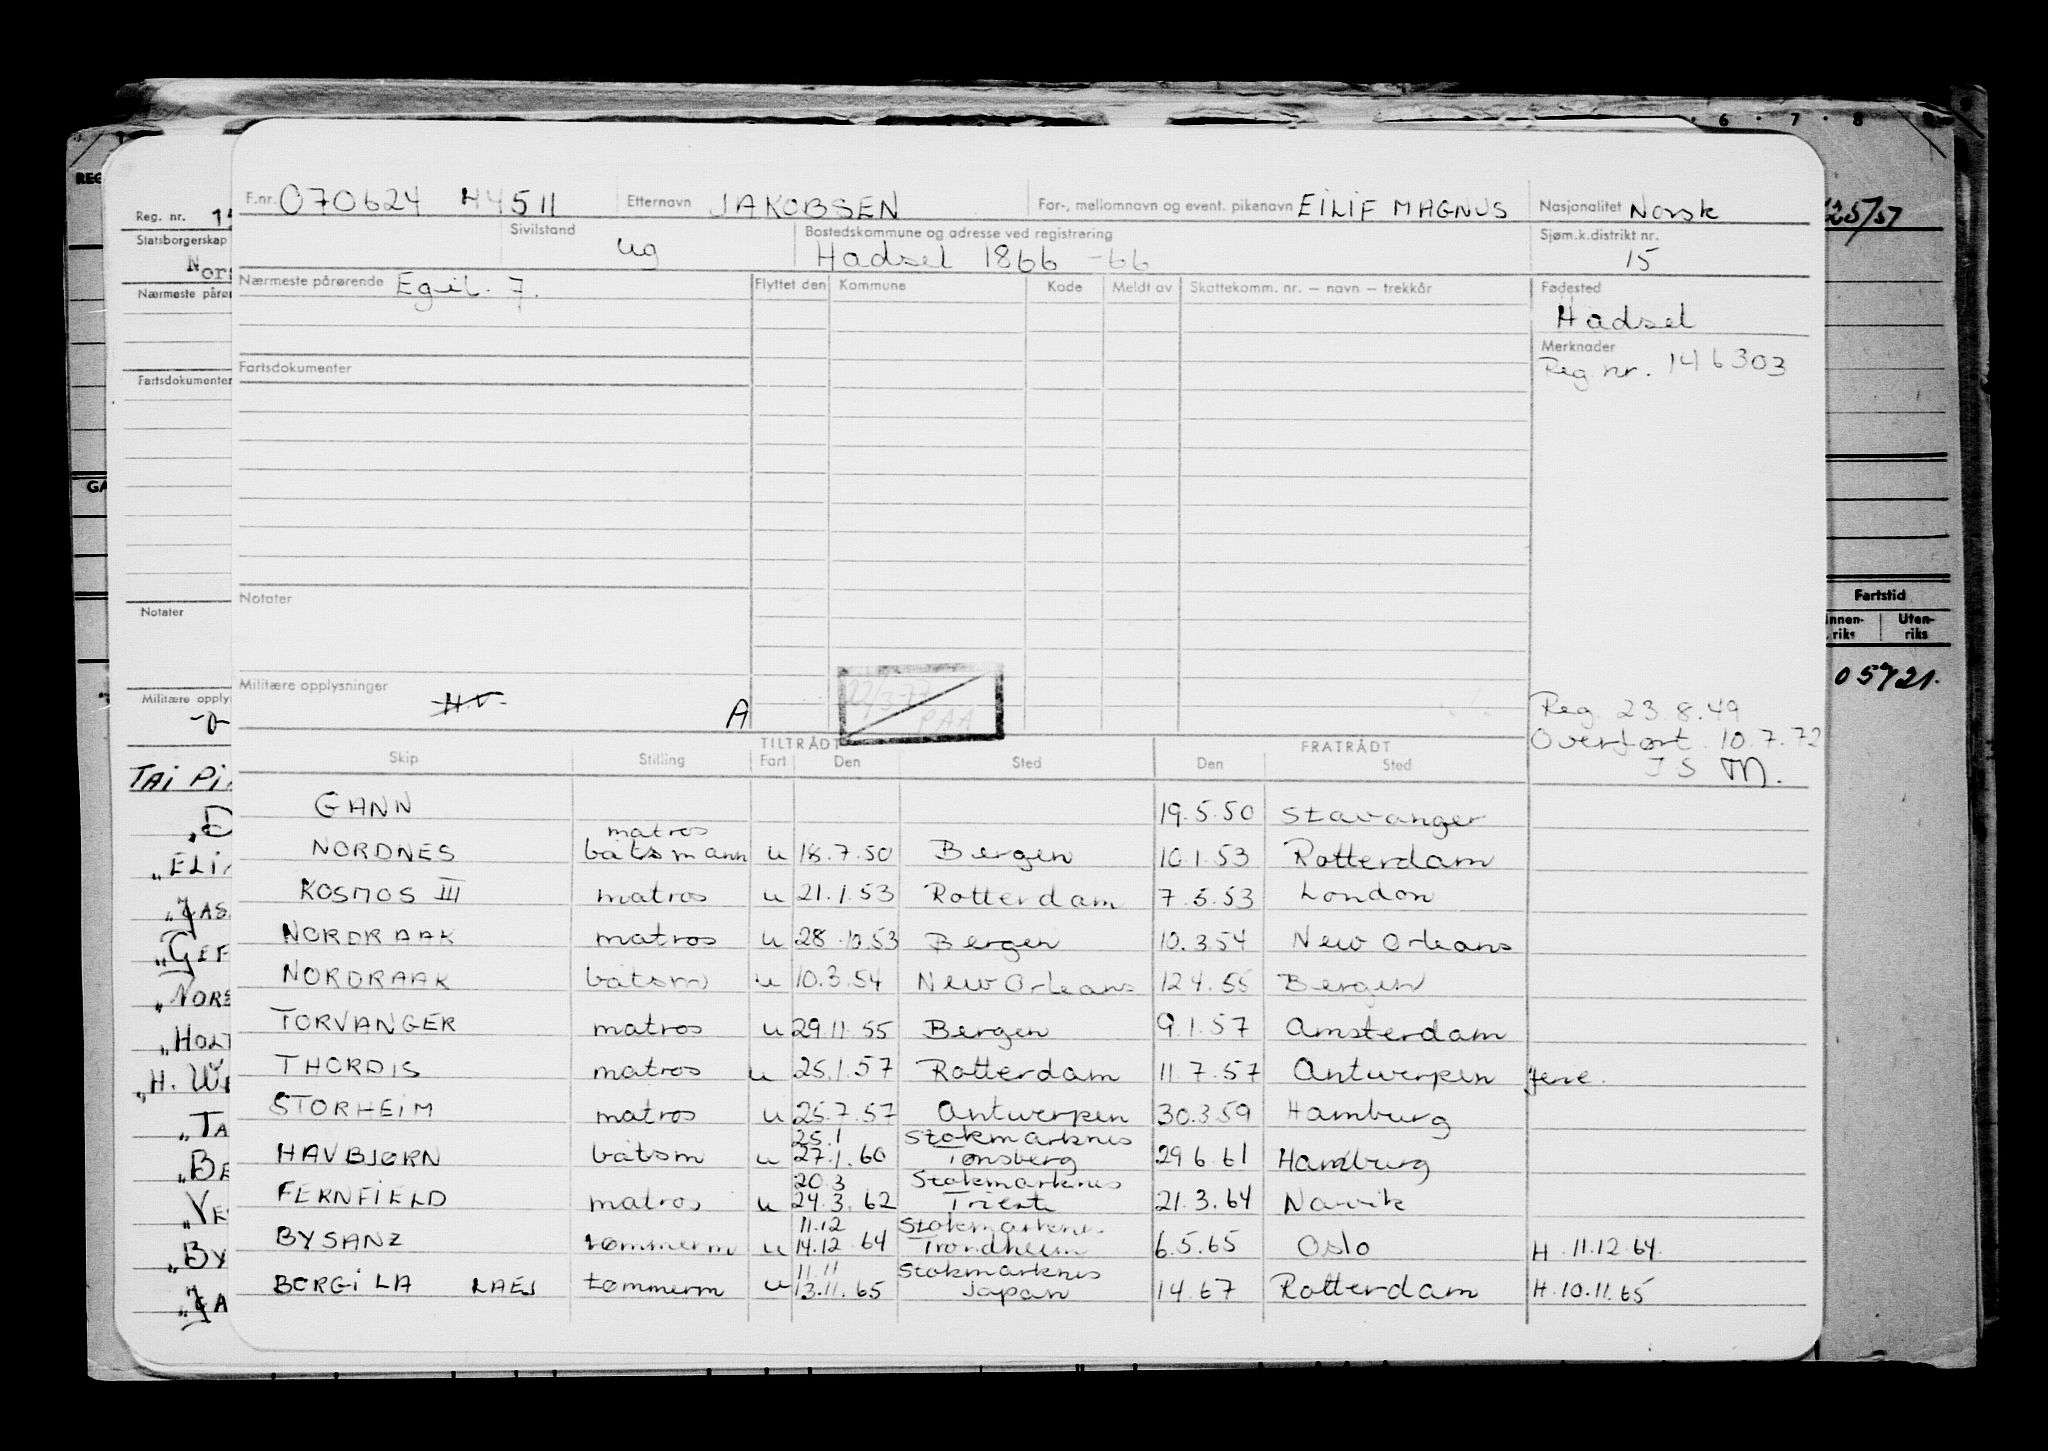 6 7 8
REG
25/57
GA
Fartstid
Innen-
riks
Uten-
riks
Reg. nr.
Statsborgerskap
Nors
Nærmeste pårør
Fartsdokumenter
Notater
Militære opply
TAI PI
"ELI
"JAS
"GEF
"NORS
"HOLT
"TA
"BE
"VE
"BY
"JA
F.nr. 070624 44511 Etternavn JAKOBSEN For-, mellomnavn og event. pikenavn EILIF MAGNUS Nasjonalitet Norsk
Sivilstand ug Bostedskommune og adresse ved registrering Hadsel 1866 -66 Sjøm.k.distrikt nr. 15
Nærmeste pårørende Egil. F. Flyttet den Kommune Kode Meldt av Skattekomm. nr. – navn – trekkår Fødested
Hadsel
Merknader
Reg. nr. 146303
Fartsdokumenter
Notater
Militære opplysninger HV A
PAA
Reg. 23.8.49
Overført. 10.7.72
TILTRÅDT FRATRÅDT
Skip Stilling Fart Den Sted Den Sted
GANN 19.5.50 Stavanger
matros
NORDNES båtsmann u 18.7.50 Bergen 10.1.53 Rotterdam
KOSMOS III matros u 21.1.53 Rotterdam 7.5.53 London
NORDRAAK matros u 28.10.53 Bergen 10.3.54 New Orleans
NORDRAAK båtsm u 10.3.54 New Orleans 12 4.55 Bergen
TORVANGER matros u 29.11.55 Bergen 9.1.57 Amsterdam
THORDIS matros u 25.1.57 Rotterdam 11.7.57 Antwerpen
STORHEIM matros u 25.7.57 Antwerpen 30.3.59 Hamburg
25.1 Stokmarknes
HAVBJØRN båtsm u 27.1.60 Tønsberg 29 6.61 Hamburg
20.3 Stokmarknes
FERNFIELD matros u 24.3.62 Trieste 21.3.64 Narvik
11.12 Stokmarkne.
BYSANZ tømmerm u 14.12.64 Trondheim 6.5.65 Oslo H. 11.12.64.
11.11 Stokmarknes
BORGILA LAEJ tømmerm u 13.11.65 Japan 14.67 Rotterdam H. 10.11.65